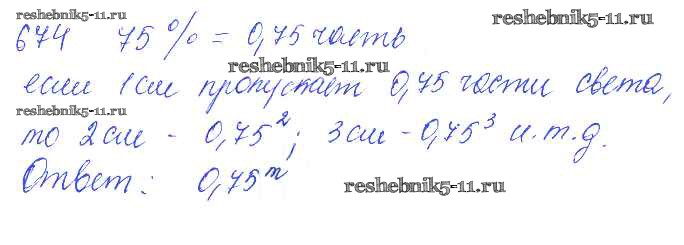 reshebnik5-11.ru reshebnik5-11.ru
674 75% = 0,75 часть
reshebnik5-11.ru
если 1см пропускает 0,75 части света,
reshebnik5-11.ru
то 2см - 0,75²; 3см - 0,75³ и.т.д.
Ответ: 0,75ᵐ
reshebnik5-11.ru